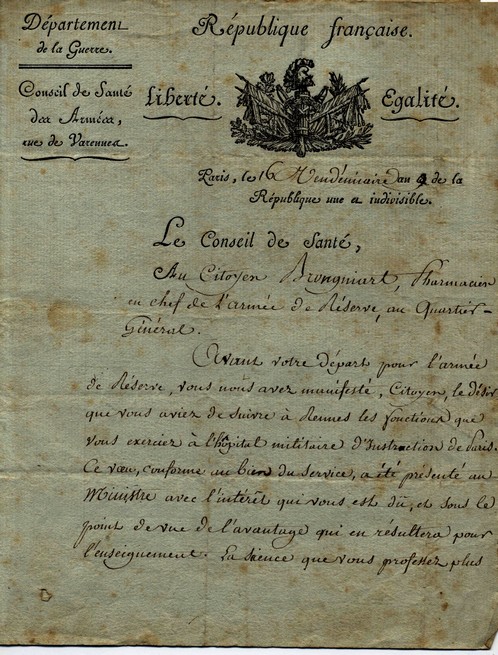 Département
de la Guerre.
République française.
Conseil de Santé
des Armées,
rue de Varennes.
Liberté.
Egalité.
Paris, le 16 Vendémiaire an 9 de la
République une et indivisible.
Le Conseil de Santé,
Au Citoyen Brongniart, Pharmacien
en chef de l'armée de Réserve, au Quartier-
Général.
Avant votre départ pour l'armée
de Réserve, vous nous avez manifesté, Citoyen, le désir
que vous aviez de suivre à Rennes les fonctions que
vous exerciez à l'hôpital militaire d'Instruction de Paris.
Ce vœu, conforme au bien du service, a été présenté au
Ministre avec l'intérêt qui vous est dû, et sous le
point de vue de l'avantage qui en résultera pour
l'enseignement. La sience que vous professez plus